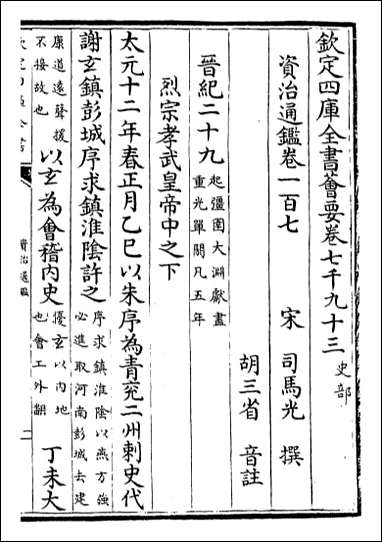 欽定四庫全書薈要卷七千九十三 史部
資治通鑑卷一百七
宋 司馬光 撰
胡三省 音註
晉紀二十九 起彊圉大淵獻盡
重光單閼凡五年
烈宗孝武皇帝中之下
太元十二年春正月乙巳以朱序為青兗二州刺史代
謝玄鎮彭城序求鎮淮陰許之 序求鎮淮陰以燕方強
必進取河南彭城去建
康道遠聲援
不接故也 以玄為會稽內史 優玄以內地
也會工外翻 丁未大
資治通鑑
一